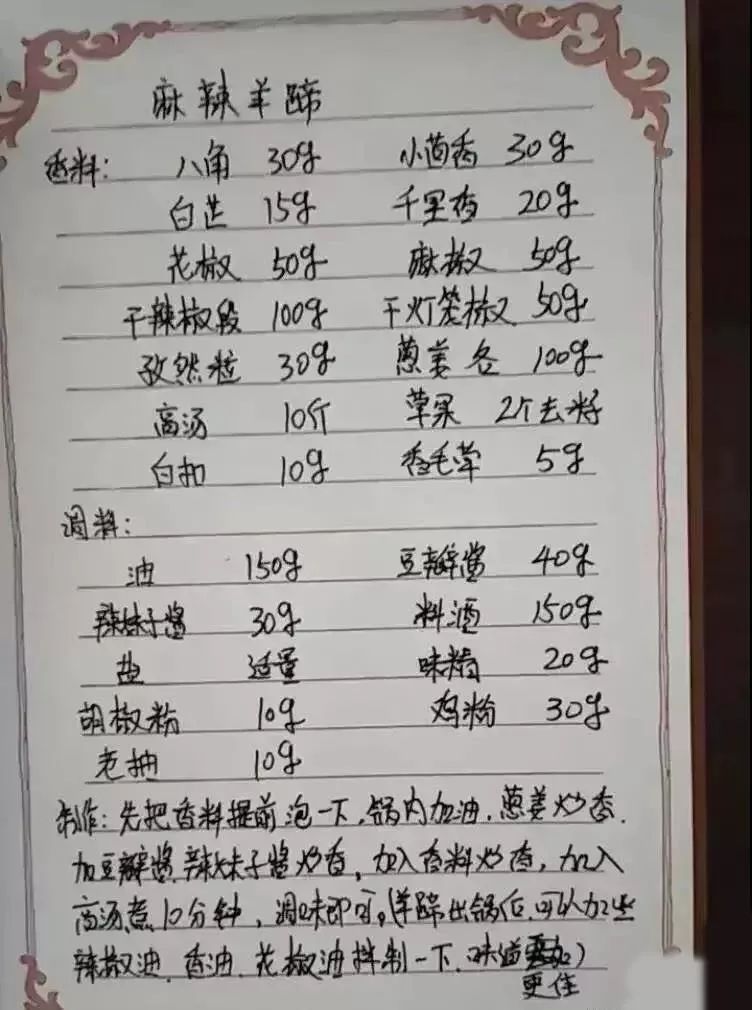 麻辣羊蹄
香料: 八角 30g 小茴香 30g
白芷 15g 千里香 20g
花椒 50g 麻椒 50g
干辣椒段 100g 干灯笼椒 50g
孜然粒 30g 葱姜各 100g
高汤 10斤 草果 2个去籽
白扣 10g 香毛草 5g
调料:
油 150g 豆瓣酱 40g
辣妹子酱 30g 料酒 150g
盐 适量 味精 20g
胡椒粉 10g 鸡粉 30g
老抽 10g
制作: 先把香料提前泡一下, 锅内加油, 葱姜炒香.
加豆瓣酱, 辣妹子酱炒香, 加入香料炒香, 加入
高汤煮10分钟, 调味即可。(羊蹄出锅后, 可以加些
辣椒油. 香油. 花椒油拌制一下. 味道)
更佳